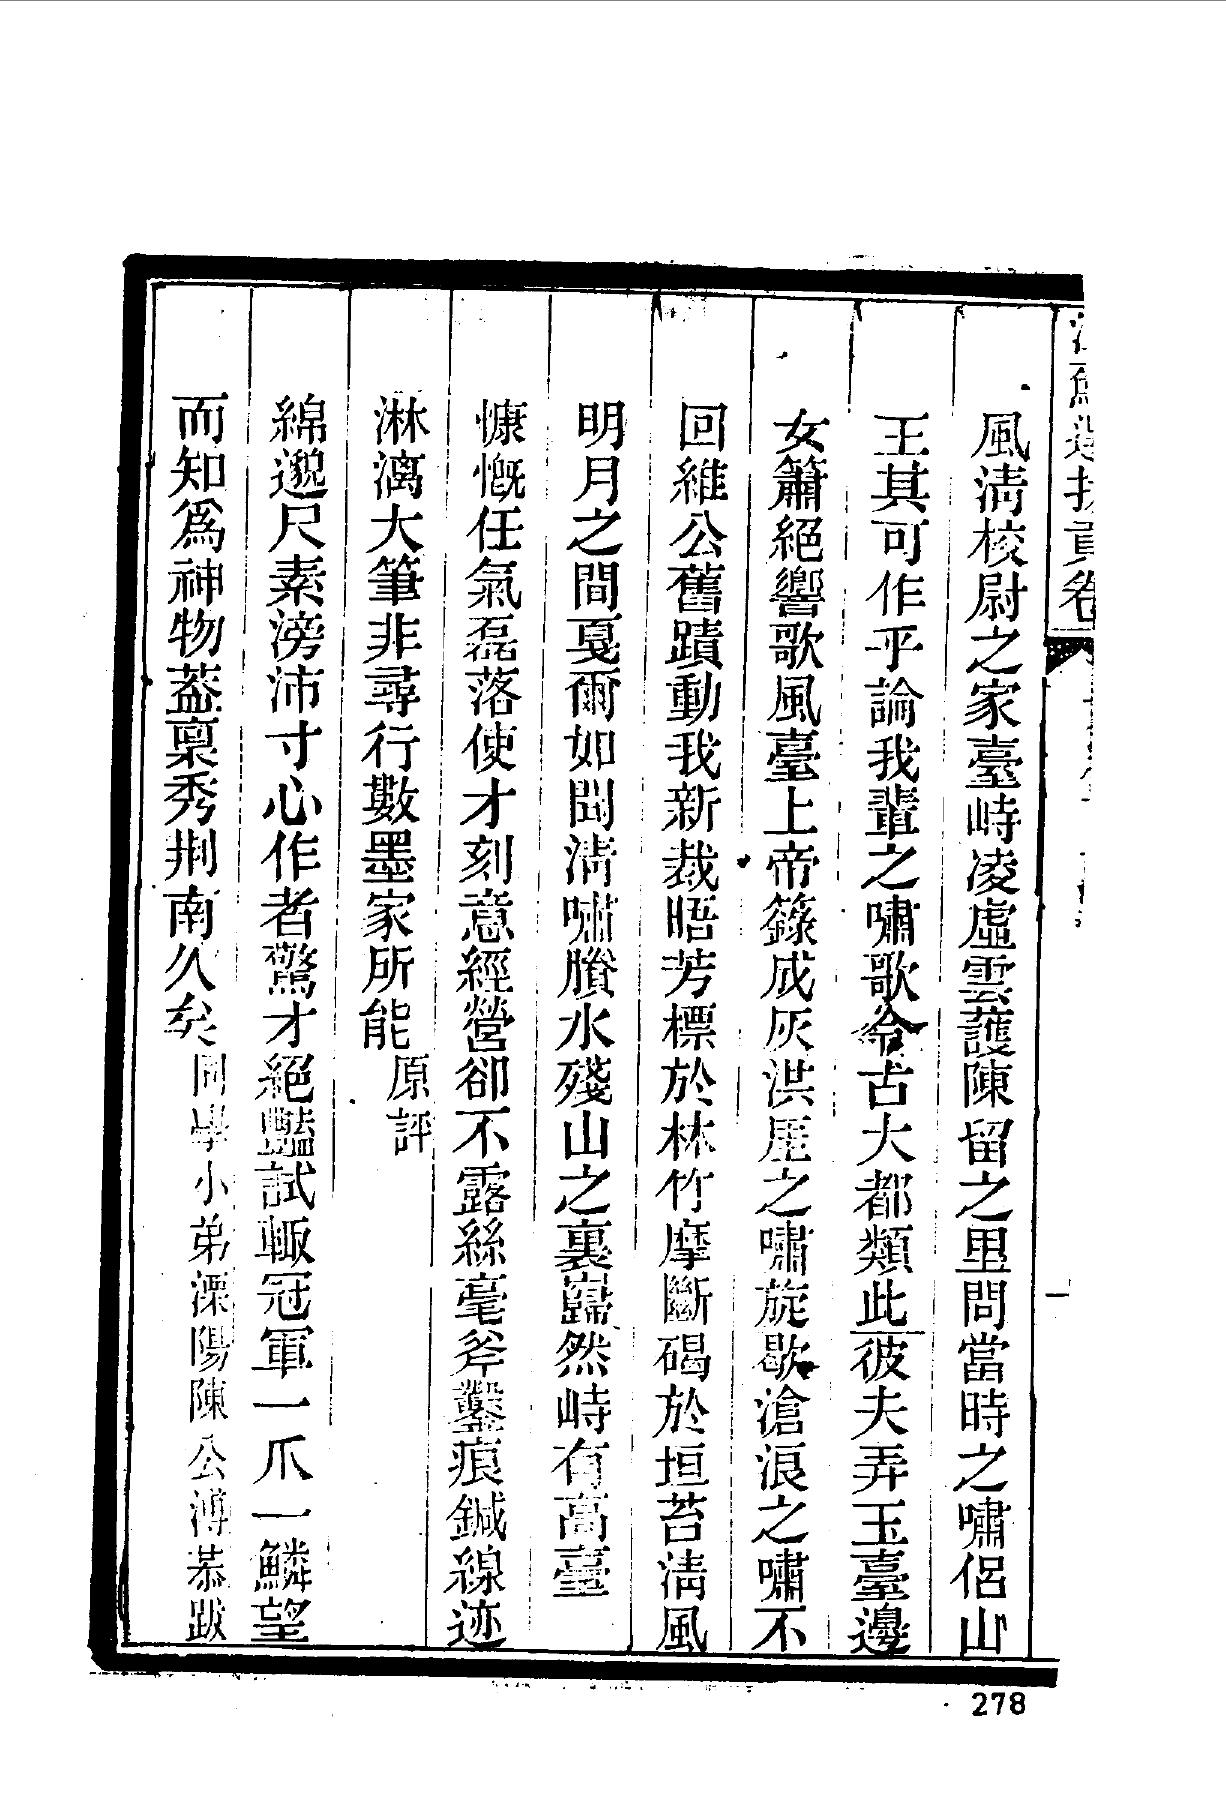 選拔貢卷
風淸校尉之家臺峙凌虛雲護陳留之里問當時之嘯侶山
王其可作乎論我輩之嘯歌今古大都類此彼夫弄玉臺邊
女簫絕響歌風臺上帝籙成灰洪厓之嘯旋歇滄浪之嘯不
回維公舊蹟動我新裁晤芳標於林竹摩斷碣於垣苔淸風
明月之間戞爾如聞淸嘯賸水殘山之裏巋然峙有高臺
慷慨任氣磊落使才刻意經營卻不露絲毫斧鑿痕鍼線迹
淋漓大筆非尋行數墨家所能 原評
綿邈尺素滂沛寸心作者驚才絕豔試輙冠軍一爪一鱗望
而知爲神物葢稟秀荆南久矣 同學小弟溧陽陳公溥恭跋
一
278